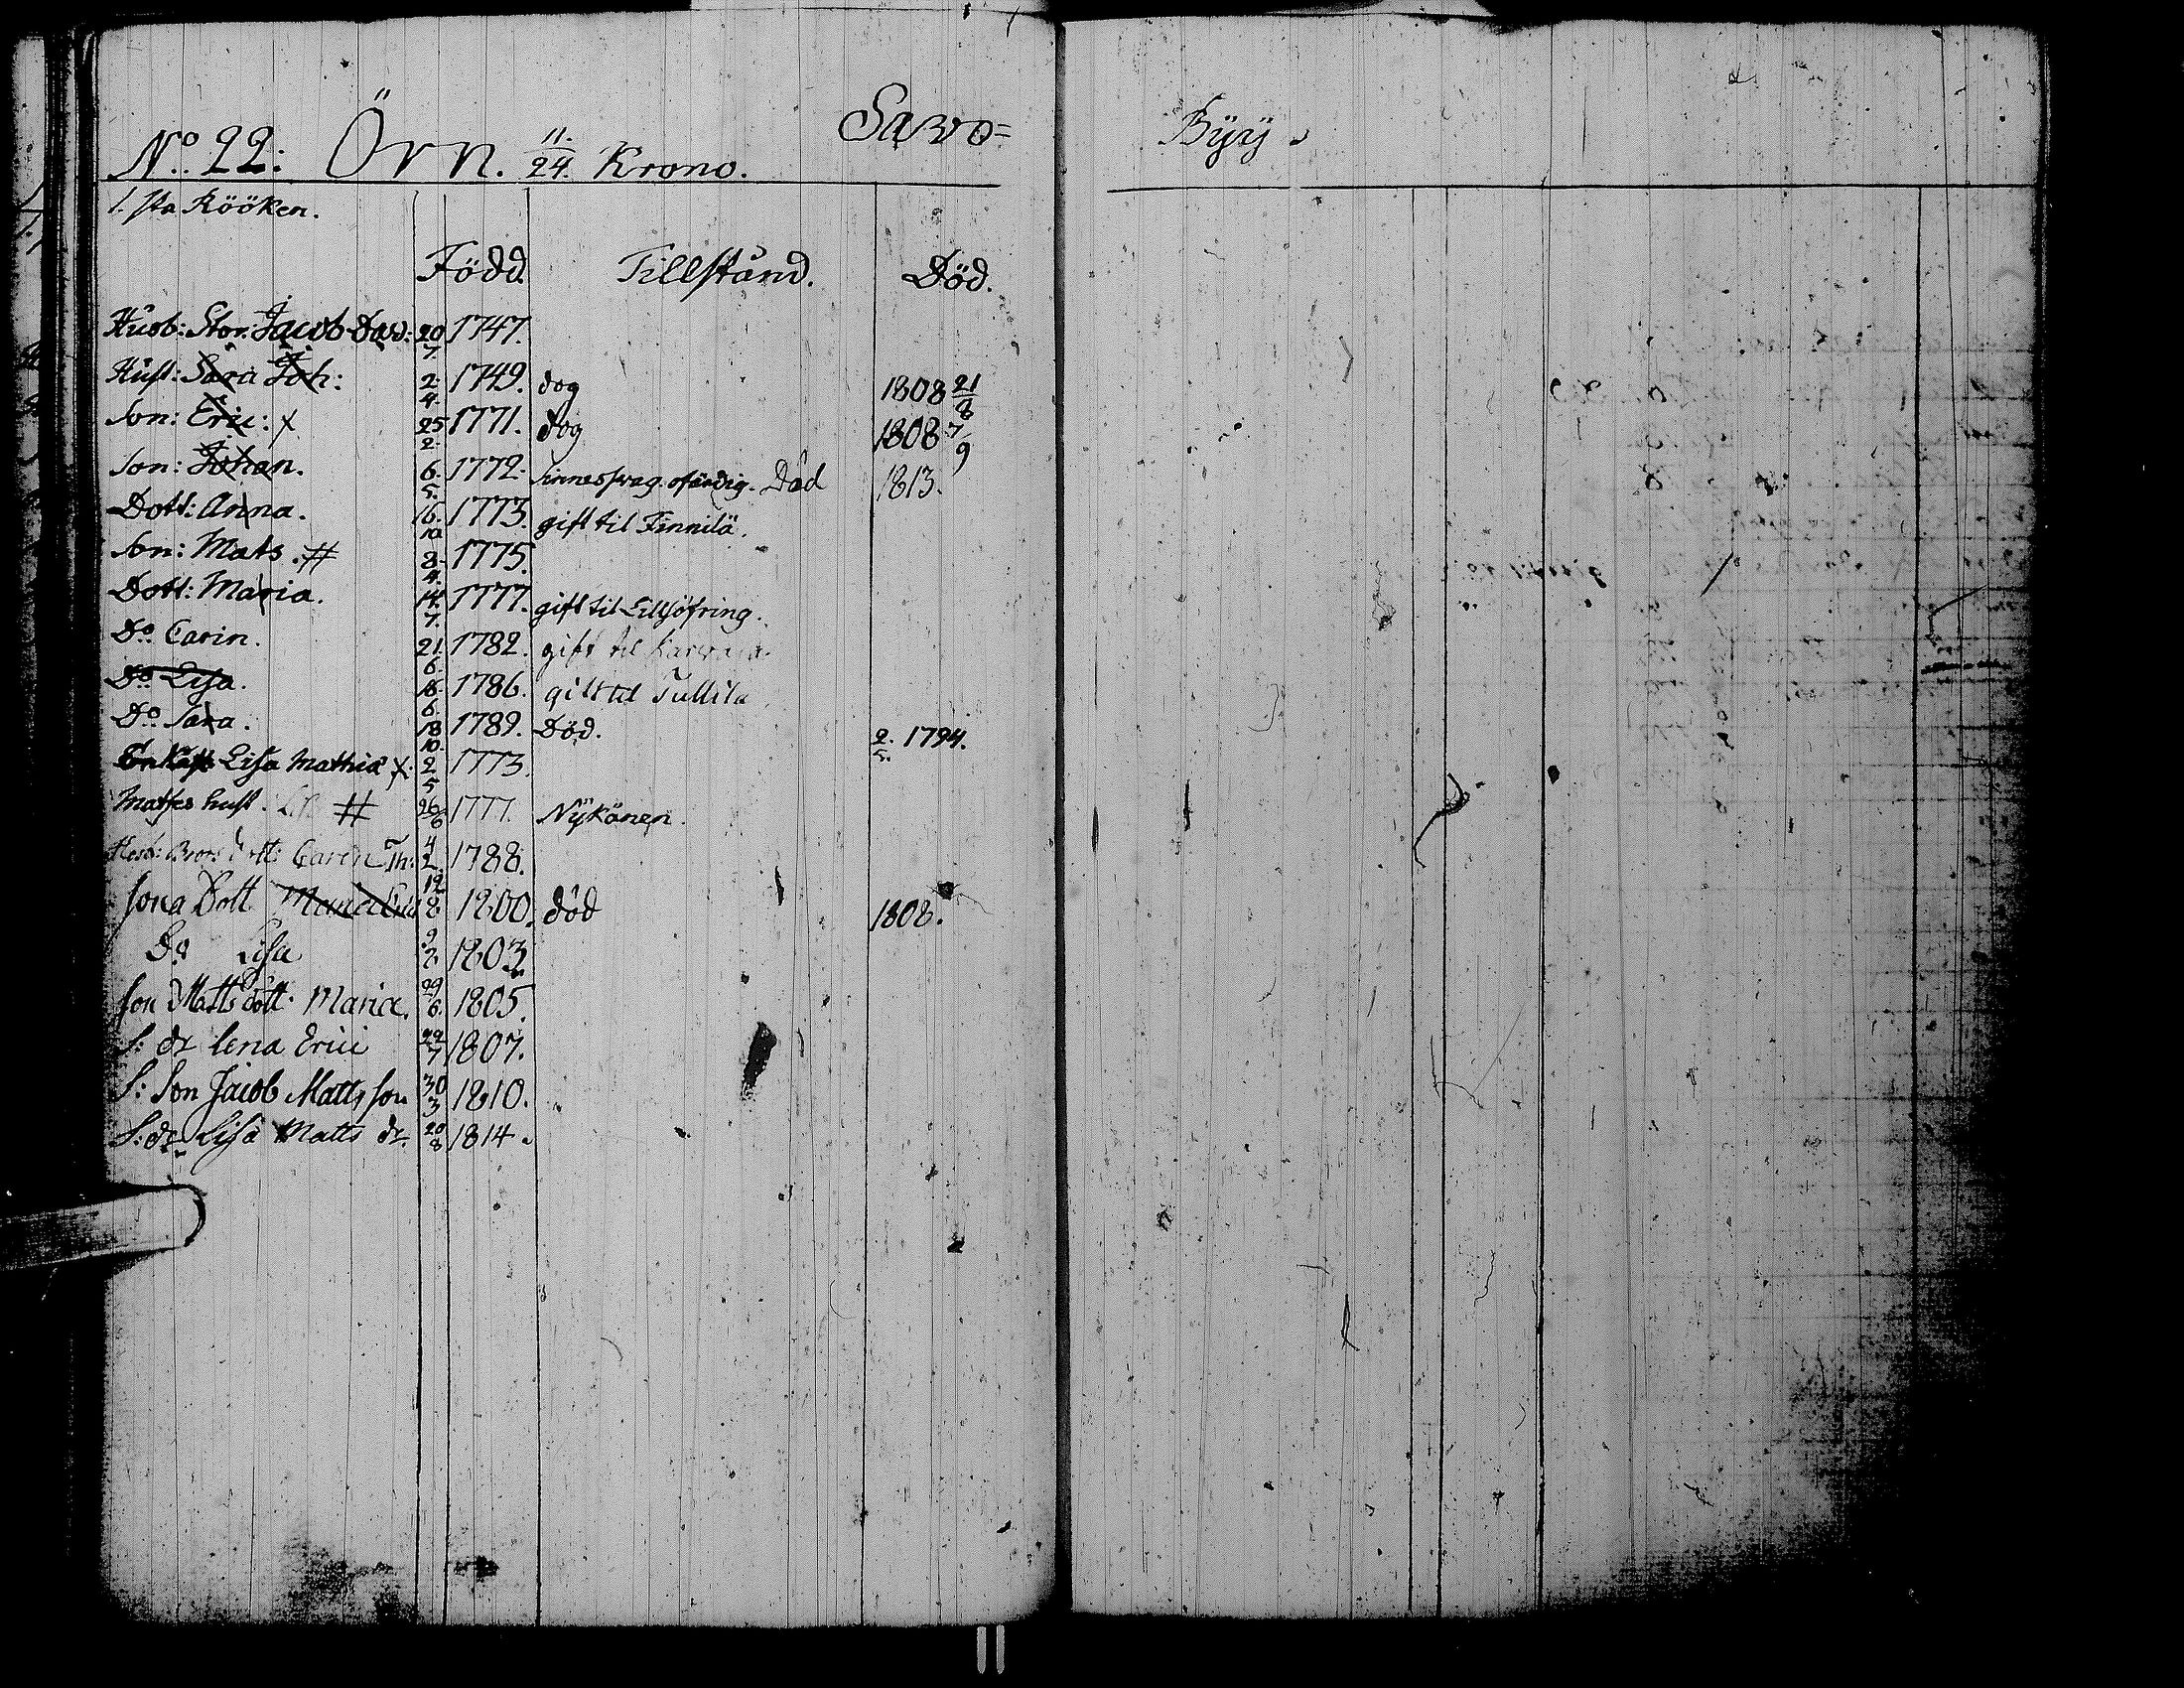 Savo= Byÿ
No. 22: Örn. 11/24. Krono.
1. sta Rööken.
Född. Tillstånd. Död.
Husb: Stor. Jacob Dav: 20/7. 1747.
Hust: Sara Joh: 2/4. 1749. dog 1808 21/8
Son: Eric: x 25/2. 1771. dog 1808 7/9
Son: Johan. 6/5. 1772. Sinnessvag. ofärdig. Död 1813.
Dott: Anna. 16/10 1773. gift til Finnilä.
Son: Mats. # 8/4. 1775.
Dott: Maria. 14/7. 1777. gift til Lilljöfring.
Do. Carin. 21/6. 1782. gift til
Do. Lisa. 16/6. 1786. gift til Tullila
Do. Sara. 18/10. 1789. Död. 2/5. 1794.
Lisa Mathiæ x 2/5 1773.
Matses hust. # 26/6 1777. Nykänen.
Brors dott: Carin Th: 4/2 1788.
Sona Dott Maria 12/8 1800. död 1808.
Do Lisa 9/2 1803.
Son Matts dott. Maria. 29/6. 1805.
S: dr Lena Erici 22/7 1807.
S: Son Jacob Matts son 30/3 1810.
S: dr Lisa Matts dr. 20/8 1814.